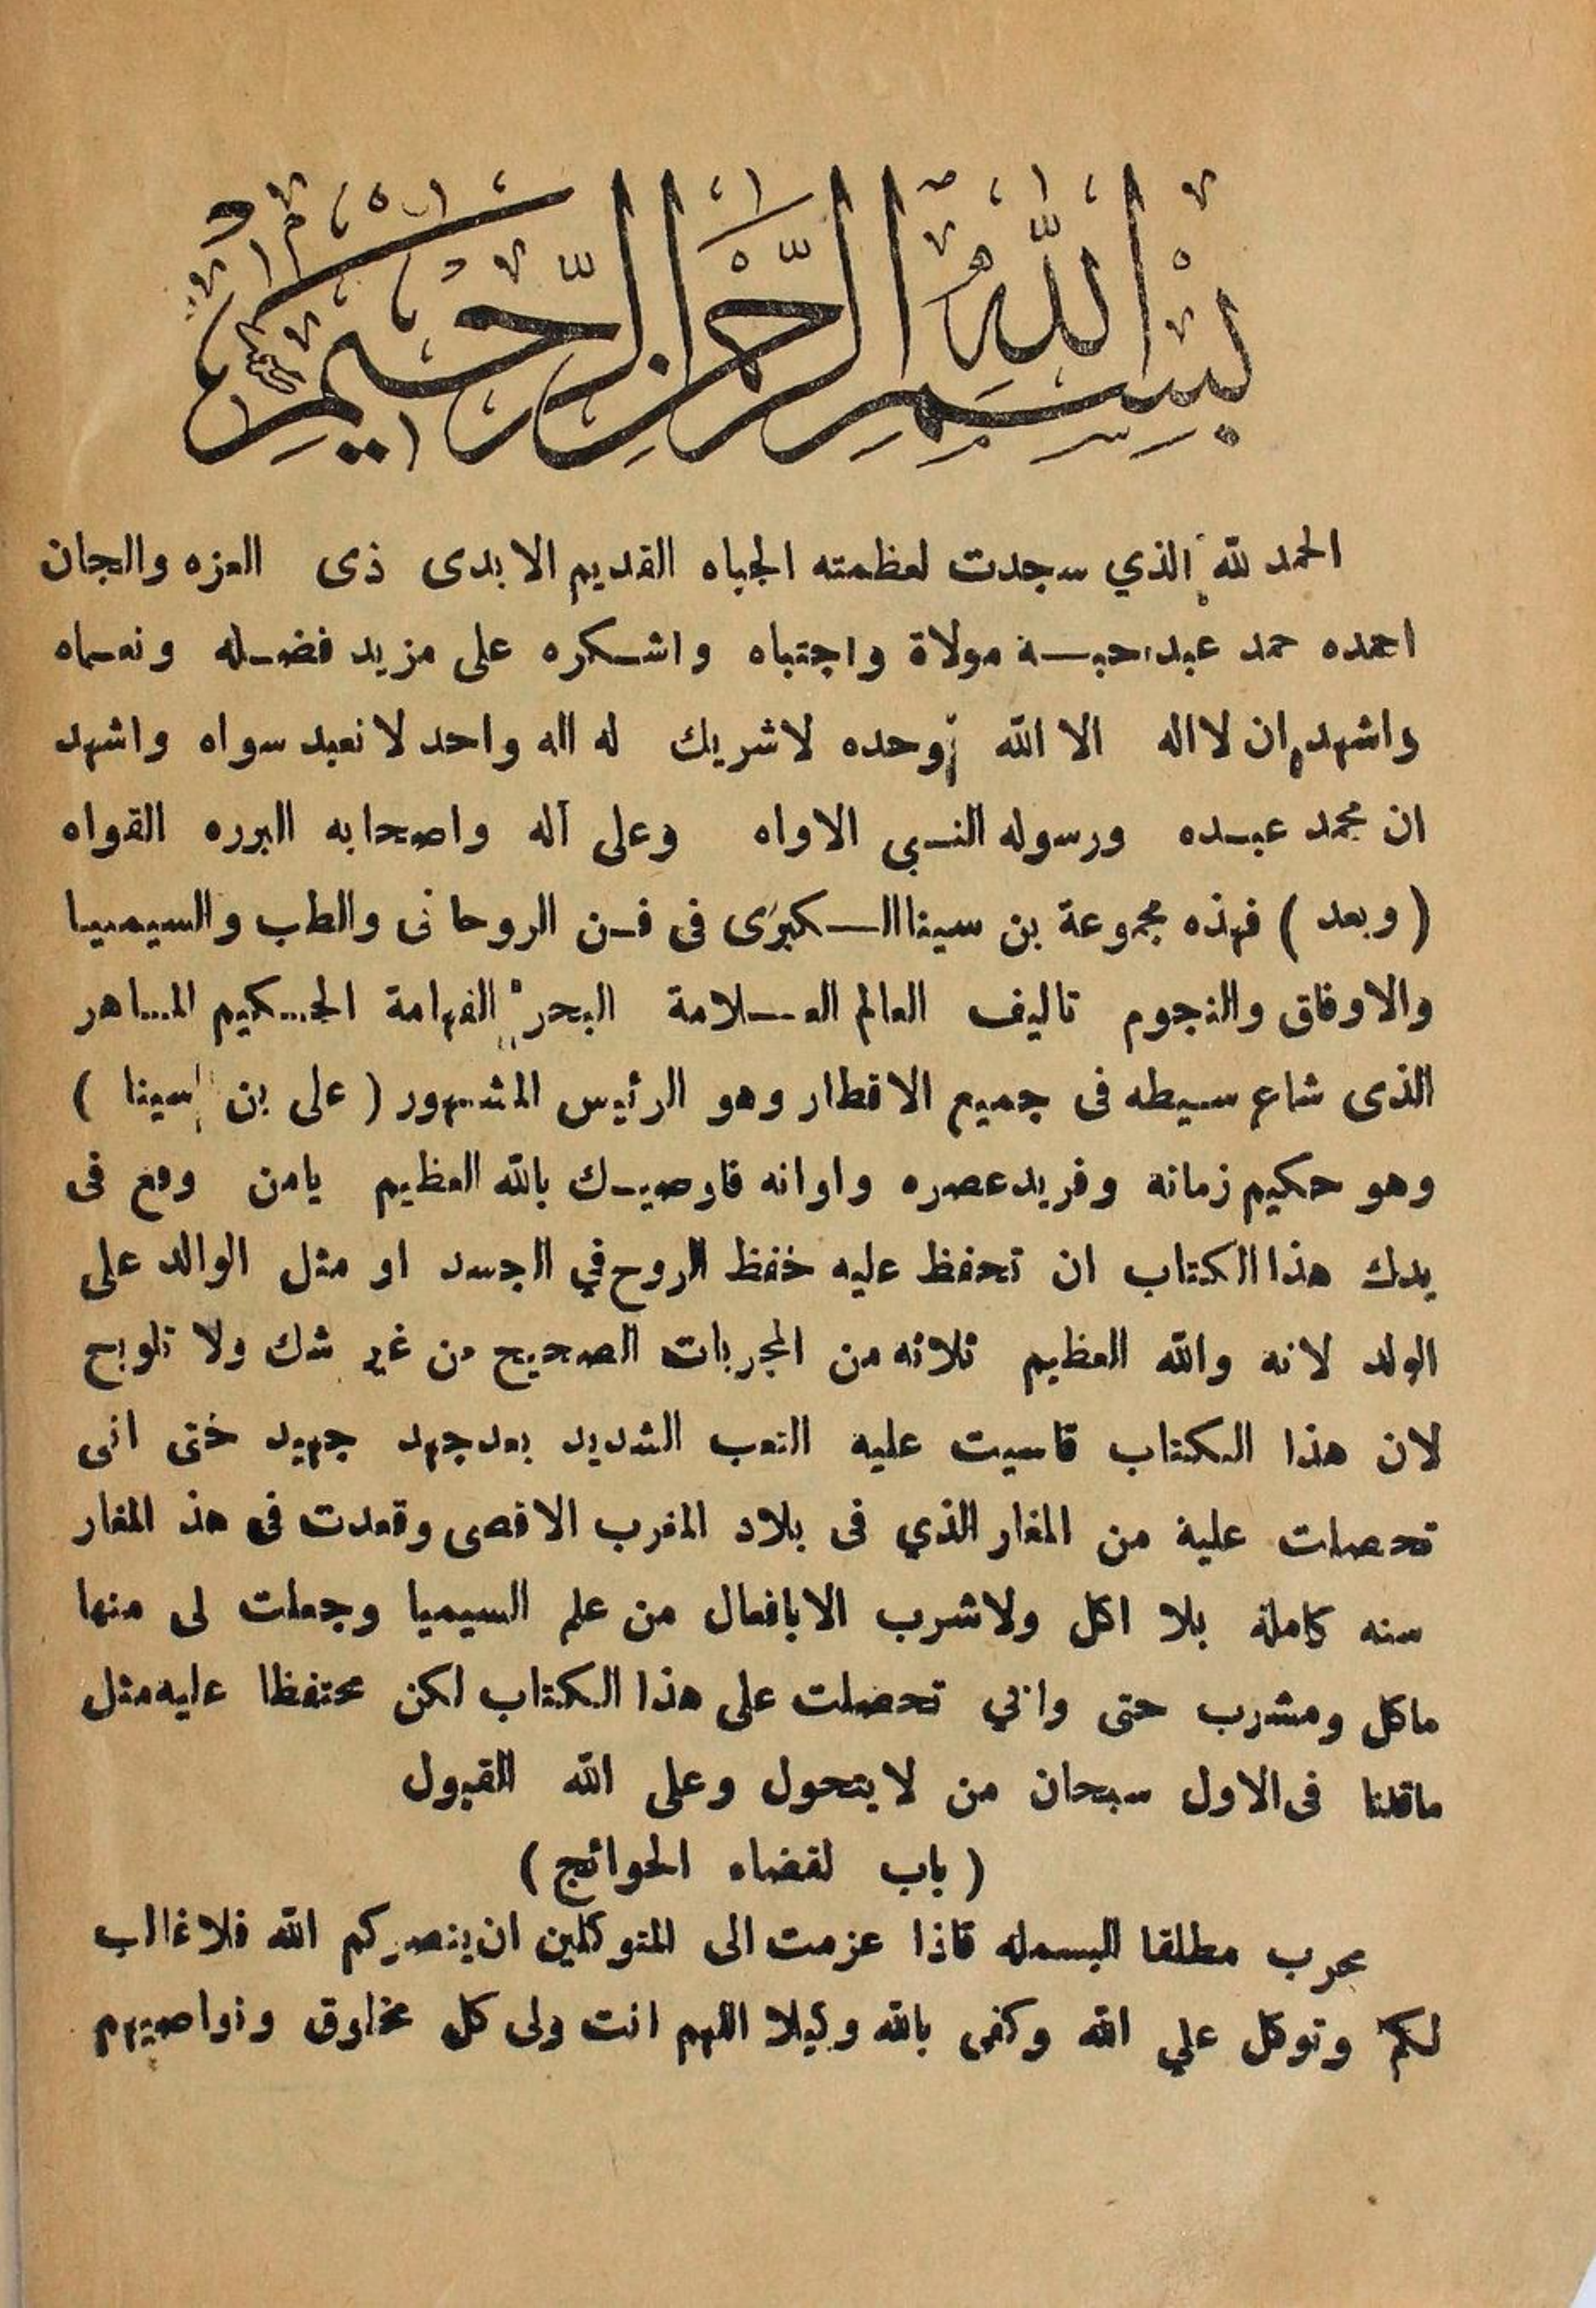 بسم الله الرحمن الرحيم
الحمد لله الذي سجدت لعظمته الجباه القديم الابدى ذى العزه والجان
احمده حمد عبد احبة مولاة واجتباه واشكره على مزيد فضله ونعماه
واشهد ان لااله الا الله وحده لاشريك له اله واحد لا نعبد سواه واشهد
ان محمد عبده ورسوله النبي الاواه وعلى آله واصحابه البرره القواه
( وبعد ) فهذه مجموعة بن سينا الكبرى فى فن الروحانى والطب والسيميا
والاوفاق والنجوم تاليف العالم العلامة البحر الفهامة الحكيم الماهر
الذى شاع سيطه فى جميع الاقطار وهو الرئيس المشهور ( على بن سينا )
وهو حكيم زمانه وفريد عصره واوانه فاوصيك بالله العظيم يامن وقع فى
يدك هذا الكتاب ان تحفظ عليه خفظ الروح في الجسد او مثل الوالد على
الولد لانه والله العظيم ثلاثه من المجربات الصحيح من غير شك ولا تلويح
لان هذا الكتاب قاسيت عليه التعب الشديد بعد جهد جهيد ختى انى
تحصلت علية من المغار الذي فى بلاد المغرب الاقصى وقعدت فى هذ المغار
سنه كاملة بلا اكل ولاشرب الا بافعال من علم السيميا وجعلت لى منها
ماكل ومشرب حتى وانى تحصلت على هذا الكتاب لكن محتفظا عليه مثل
ماقلنا فى الاول سبحان من لا يتحول وعلى الله القبول
( باب لقضاء الحوائج )
مجرب مطلقا البسمله فاذا عزمت الى المتوكلين ان ينصركم الله فلا غالب
لكم وتوكل علي الله وكفى بالله وكيلا اللهم انت ولى كل مخلوق ونواصيهم